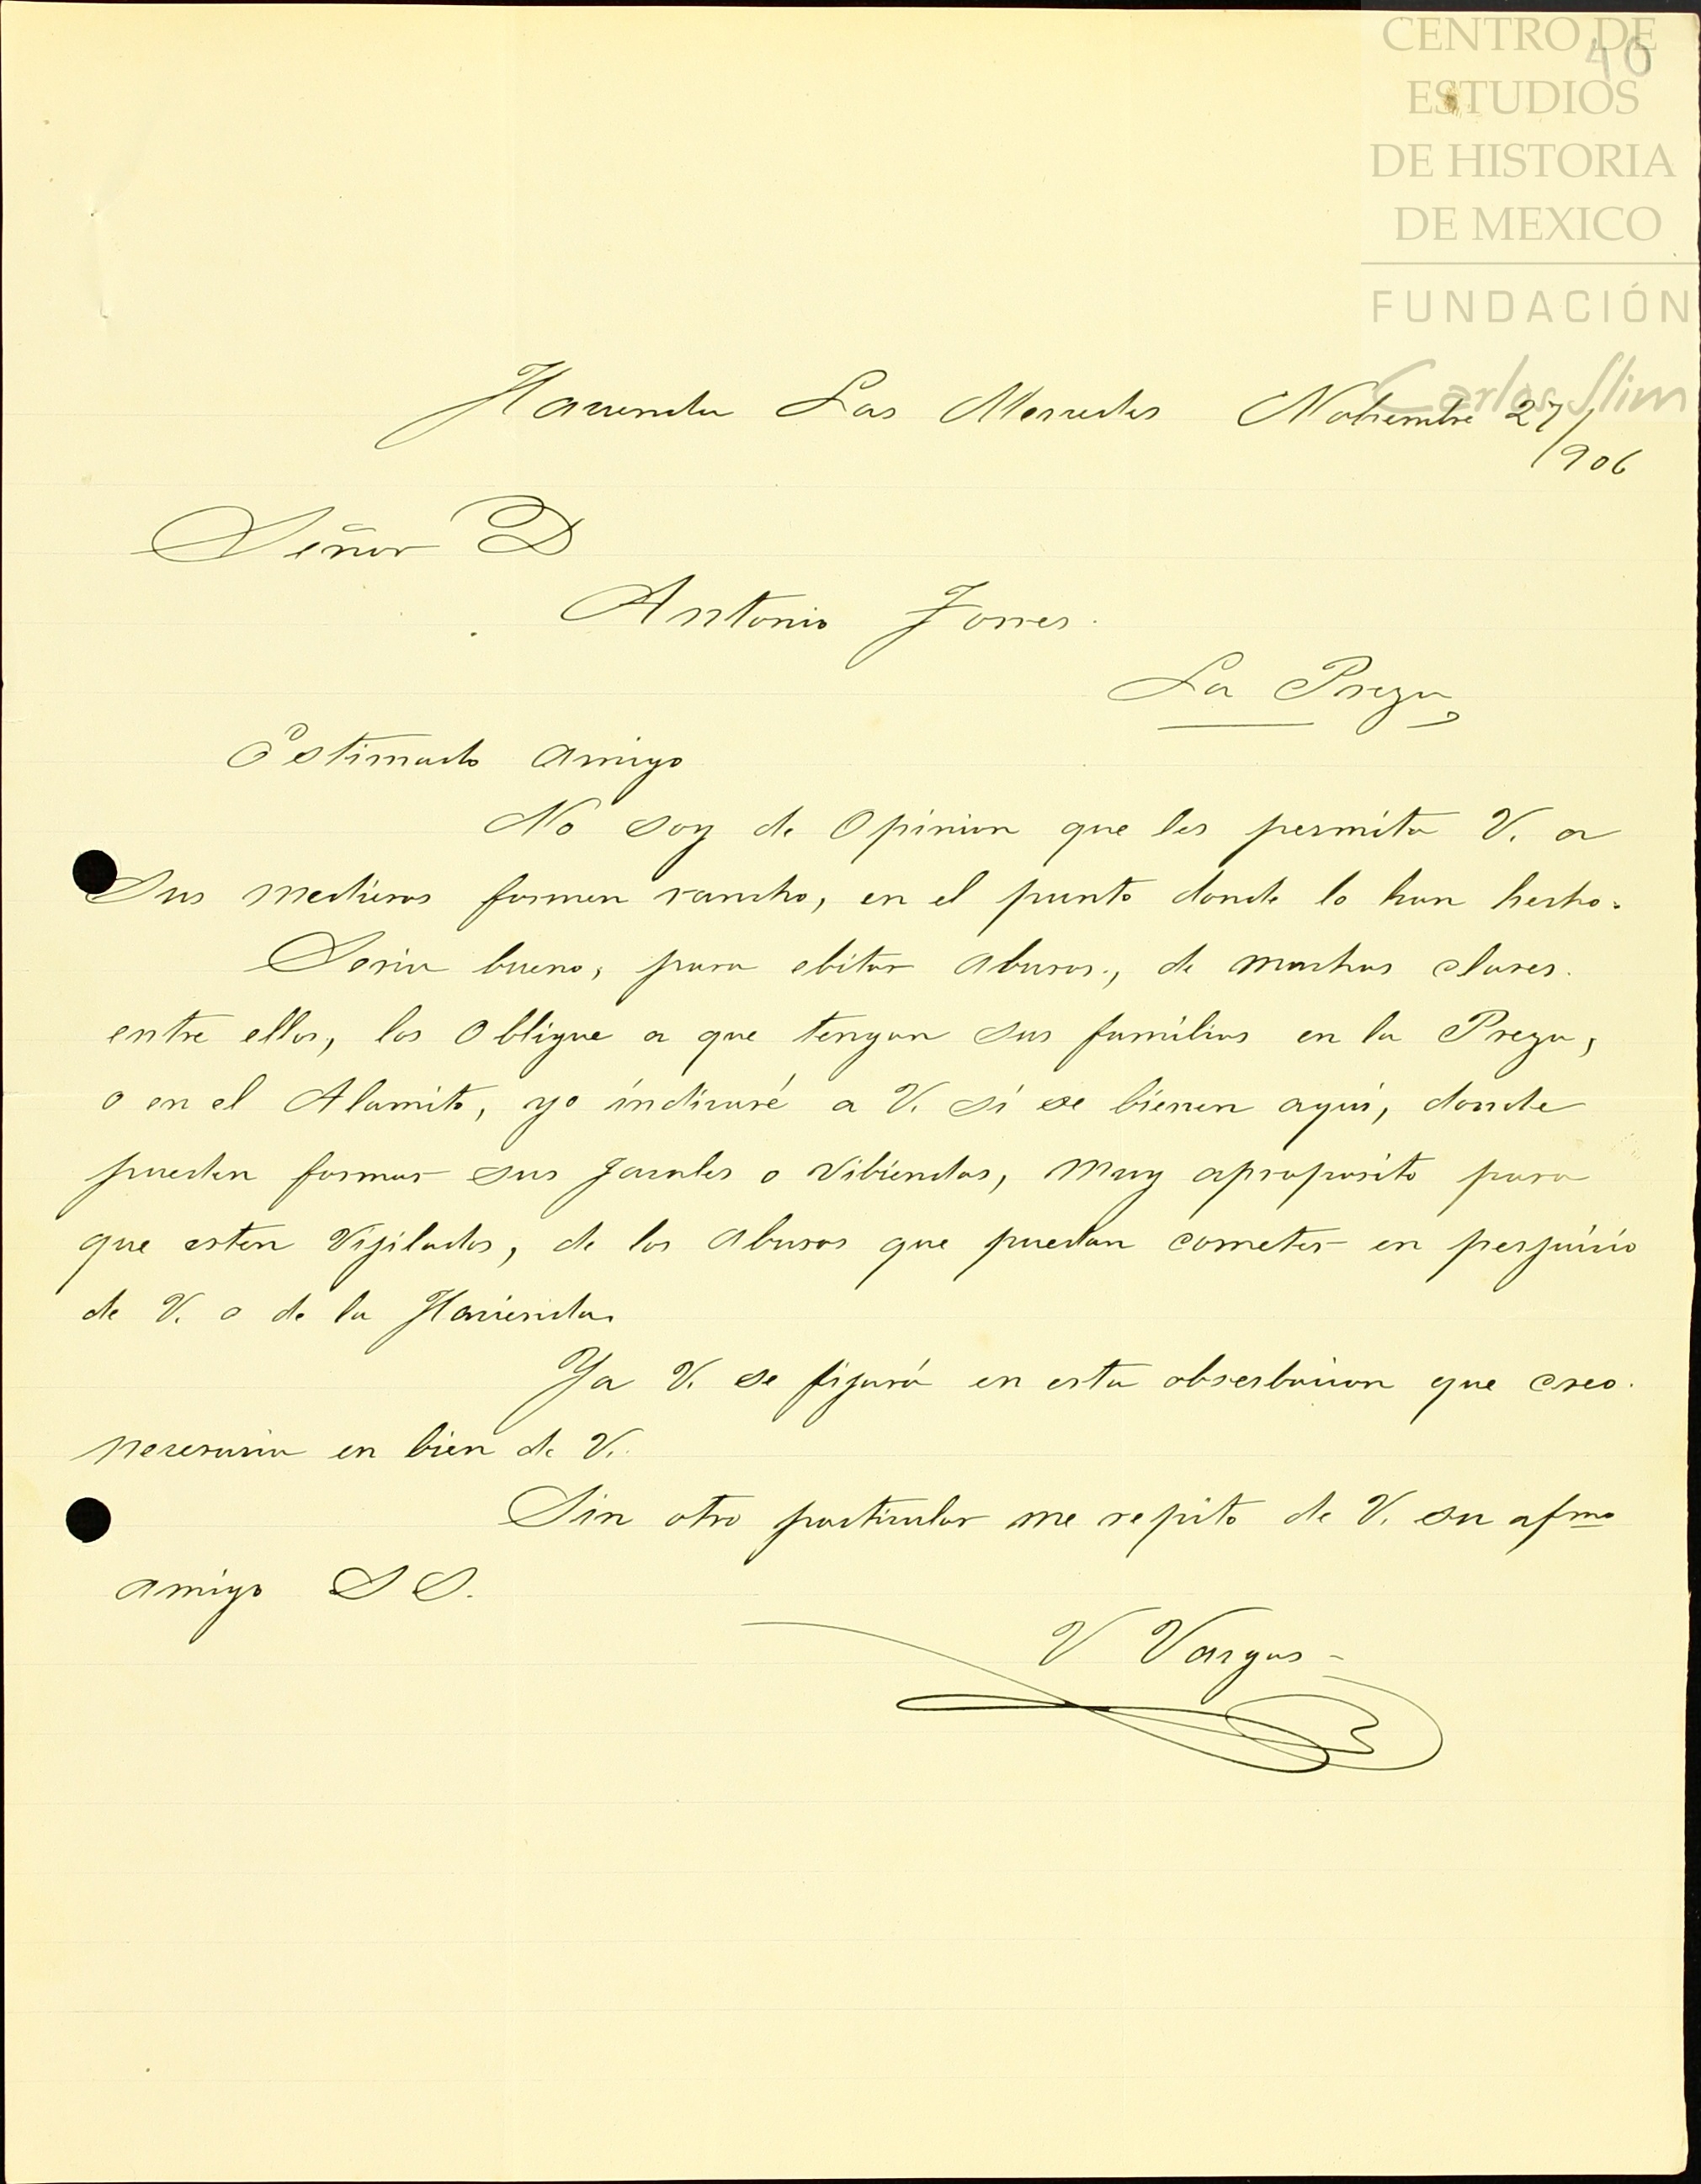 CENTRO DE
ESTUDIOS
DE HISTORIA
DE MEXICO
FUNDACIÓN
Carlos Slim
40
Hacienda Las Mercedes Nobiembre 27/906
Señor D
Antonio Torres.
La Preza
Estimado amigo
No soy de Opinion que les permita V. a
Sus medieros formen rancho, en el punto donde lo han hecho.
Seria bueno, para ebitar abusos, de muchas clases.
entre ellos, los Obligue a que tengan sus familias en la Preza,
o en el Alamito, yo indicaré a V. si se bienen aqui, donde
pueden formar sus Jacales o vibiendas, muy aproposito para
que esten Vijilados, de los abusos que puedan cometer en perjuicio
de V. o de la Hacienda.
Ya V. se fijará en esta obserbacion que creo.
necesaria en bien de V.
Sin otro particular me repito de V. su afmo
amigo S S.
V Vargas